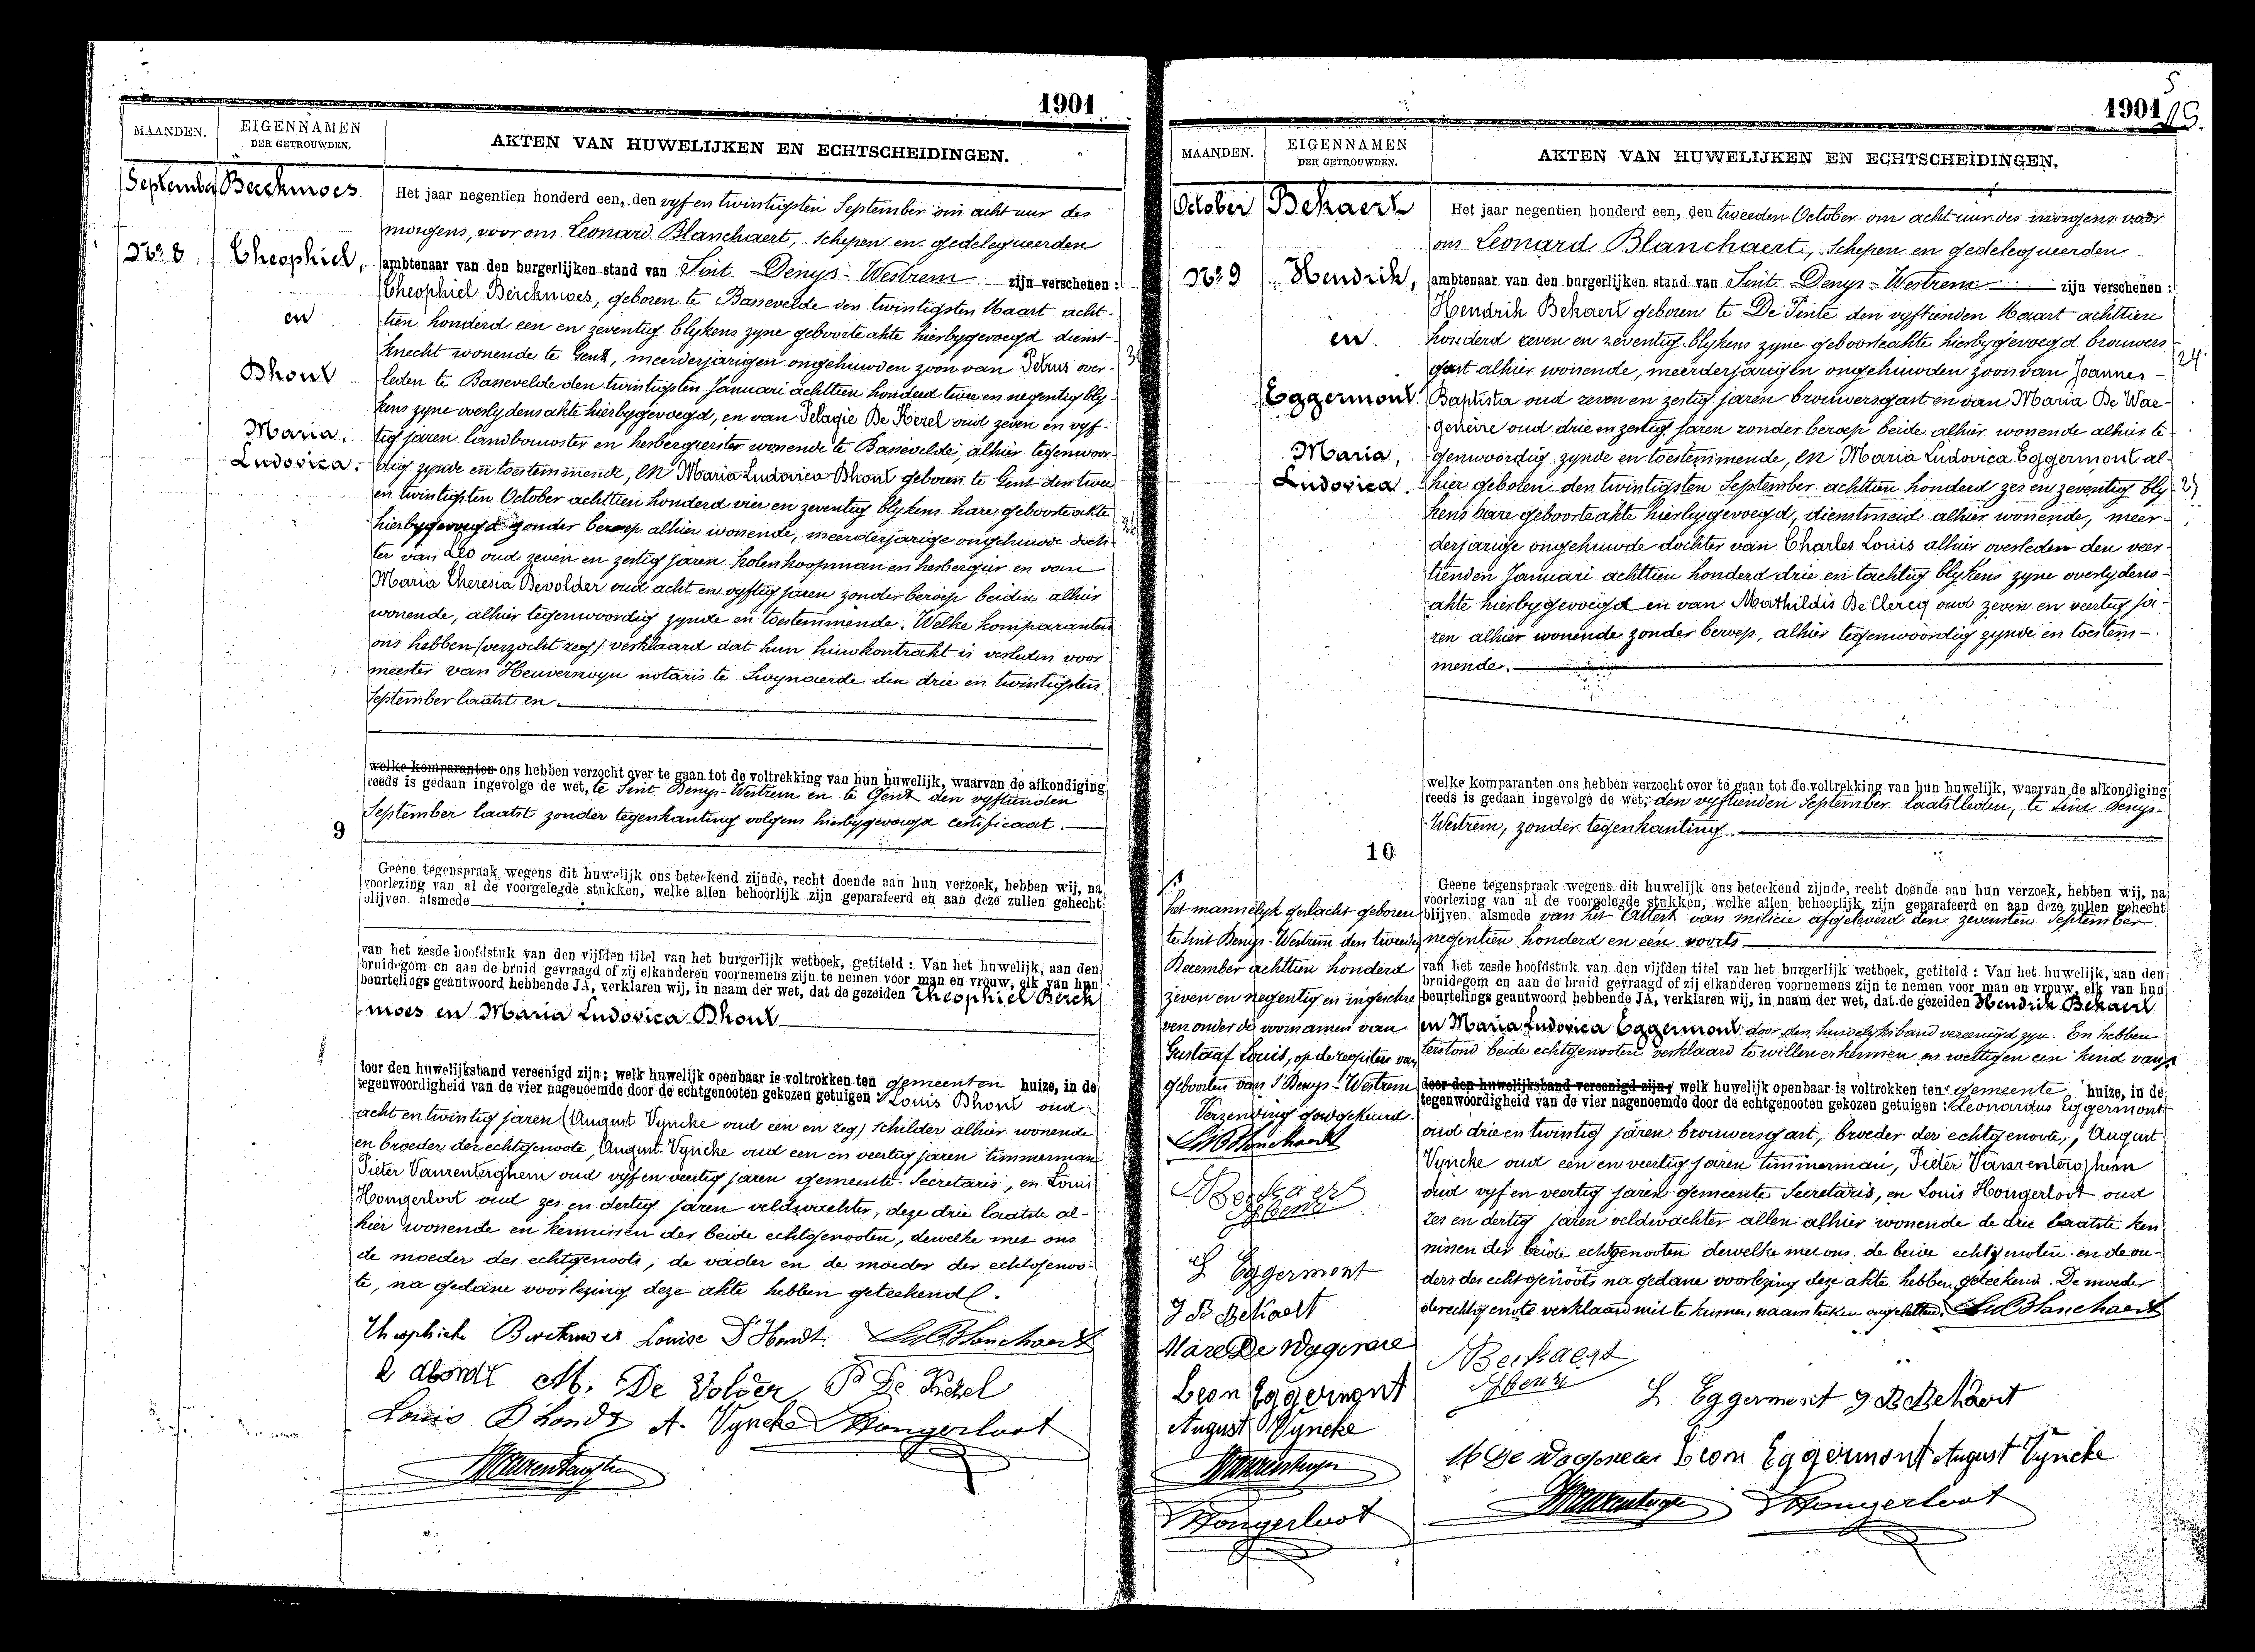 1901
MAANDEN.
EIGENNAMEN
DER GETROUWDEN.
AKTEN VAN HUWELIJKEN EN ECHTSCHEIDINGEN.
September
Berckmoes
No 8
Theophiel,
en
Dhont
Maria,
Ludovica.
Het jaar negentien honderd een, den vyf en twintigsten September om acht uur des
morgens, voor ons Leonard Blanchaert, Schepen en gedelegueerden
ambtenaar van den burgerlijken stand van Sint Denys-Westrem zijn verschenen :
Theophiel Berckmoes, geboren te Bassevelde den twintigsten Maart acht-
tien honderd een en zeventig blykens zyne geboorteakte hierbygevoegd dienst-
knecht wonende te Gent, meerderjarigen ongehuwden zoon van Petrus over-
leden te Bassevelde den twintigsten Januari achttien honderd twee en negentig bly-
kens zyne overlydensakte hierbygevoegd, en van Pelagie De Kezel oud zeven en vyf-
tig jaren landbouwster en herbergierster wonende te Bassevelde, alhier tegenwoor-
dig zynde en toestemmende, en Maria Ludovica Dhont geboren te Gent den twee
en twintigsten October achttien honderd vier en zeventig blykens hare geboorteakte
hierbygevoegd zonder beroep alhier wonende, meerderjarige ongehuwde doch-
ter van Leo oud zeven en zestig jaren kolenkoopman en herbergier en van
Maria Theresia Devolder oud acht en vyftig jaren zonder beroep beiden alhier
wonende, alhier tegenwoordig zynde en toestemmende. Welke komparanten
ons hebben (verzocht zeg) verklaard dat hun huwkontrakt is verleden voor
meester van Heuverswyn notaris te Swynaerde den drie en twintigsten
September laatst en
welke komparanten ons hebben verzocht over te gaan tot de voltrekking van hun huwelijk, waarvan de afkondiging
reeds is gedaan ingevolge de wet, te Sint Denys-Westrem en te Gent den vyftienden
September laatst zonder tegenkanting volgens hierbygevoegd certificaat.
9
Geene tegenspraak wegens dit huwelijk ons beteekend zijnde, recht doende aan hun verzoek, hebben wij, na
voorlezing van al de voorgelegde stukken, welke allen behoorlijk zijn geparafeerd en aan deze zullen gehecht
blijven. alsmede
van het zesde hoofdstuk van den vijfden titel van het burgerlijk wetboek, getiteld : Van het huwelijk, aan den
bruidegom en aan de bruid gevraagd of zij elkanderen voornemens zijn te nemen voor man en vrouw, elk van hun
beurtelings geantwoord hebbende JA, verklaren wij, in naam der wet, dat de gezeiden Theophiel Berck
moes en Maria Ludovica Dhont
door den huwelijksband vereenigd zijn; welk huwelijk openbaar is voltrokken ten gemeenten huize, in de
tegenwoordigheid van de vier nagenoemde door de echtgenooten gekozen getuigen : Louis Dhont oud
acht en twintig jaren (August Vyncke oud een en zeg) schilder alhier wonende
en broeder der echtgenoote, August Vyncke oud een en veertig jaren timmerman
Pieter Vanrenterghem oud vyf en veertig jaren gemeente Secretaris, en Louis
Hongerloot oud zes en dertig jaren veldwachter, deze drie laatste al-
hier wonende en kennissen der beide echtgenooten, dewelke met ons
de moeder des echtgenoots, de vader en de moeder der echtgenoo-
te, na gedane voorlezing deze akte hebben geteekend.
Theophiele Berckmoes Louise D'Hondt. Leo Blanchaert
L dhondt M. De Volder Pe De Kezel
Louis Dhondt A. Vyncke Hongerloot
1901
MAANDEN.
EIGENNAMEN
DER GETROUWDEN.
AKTEN VAN HUWELIJKEN EN ECHTSCHEIDINGEN.
October
Bekaert
No 9
Hendrik,
en
Eggermont
Maria,
Ludovica.
Het jaar negentien honderd een, den tweeden October om acht uur des morgens voor
ons Leonard Blanchaert, Schepen en gedelegueerden
ambtenaar van den burgerlijken stand van Sint Denys-Westrem zijn verschenen :
Hendrik Bekaert geboren te De Pinte den vyftienden Maart achttien
honderd zeven en zeventig blykens zyne geboorteakte hierbygevoegd brouwers
gast alhier wonende, meerderjarigen ongehuwden zoon van Joannes-
24
Baptista oud zeven en zestig jaren brouwersgast en van Maria De Wae-
geneire oud drie en zestig jaren zonder beroep beide alhier wonende alhier te
genwoordig zynde en toestemmende, en Maria Ludovica Eggermont al-
hier geboren den twintigsten September achttien honderd zes en zeventig bly
kens hare geboorteakte hierbygevoegd, dienstmeid alhier wonende, meer-
derjarige ongehuwde dochter van Charles Louis alhier overleden den veer-
tienden Januari achttien honderd drie en tachtig blykens zyne overlydens-
akte hierbygevoegd en van Mathildis De Clercq oud zeven en veertig ja-
ren alhier wonende zonder beroep, alhier tegenwoordig zynde en toestem-
mende.
welke komparanten ons hebben verzocht over te gaan tot de voltrekking van hun huwelijk, waarvan de afkondiging
reeds is gedaan ingevolge de wet, den vyftienden September laatstleden, te Sint Denys-
Westrem, zonder tegenkanting.
10
Geene tegenspraak wegens dit huwelijk ons beteekend zijnde, recht doende aan hun verzoek, hebben wij, na
voorlezing van al de voorgelegde stukken, welke allen behoorlijk zijn geparafeerd en aan deze zullen gehecht
blijven. alsmede van het Attest van milicie afgeleverd den zevensten September
negentien honderd en een voorts
van het zesde hoofdstuk van den vijfden titel van het burgerlijk wetboek, getiteld : Van het huwelijk, aan den
bruidegom en aan de bruid gevraagd of zij elkanderen voornemens zijn te nemen voor man en vrouw, elk van hun
beurtelings geantwoord hebbende JA, verklaren wij, in naam der wet, dat de gezeiden Hendrik Bekaert
en Maria Ludovica Eggermont door den huwelyksband vereenigd zyn. En hebben
terstond beide echtgenooten verklaard te willen erkennen en wettigen een kind van
door den huwelijksband vereenigd zijn; welk huwelijk openbaar is voltrokken ten gemeente huize, in de
tegenwoordigheid van de vier nagenoemde door de echtgenooten gekozen getuigen : Leonardus Eggermont
oud drie en twintig jaren brouwersgast, broeder der echtgenoote, August
Vyncke oud een en veertig jaren timmerman, Pieter Vanrenterghem
oud vyf en veertig jaren gemeente Secretaris, en Louis Hongerloot oud
zes en dertig jaren veldwachter allen alhier wonende de drie laatste ken
nissen der beide echtgenooten dewelke met ons de beide echtgenooten en de ou-
ders des echtgenoots na gedane voorlezing deze akte hebben geteekend. De moeder
der echtgenoote verklaard niet te kunnen naamteeken Leo Blanchaert
Bekaert
Henri
L Eggermont J B Bekaert
Leon Eggermont August Vyncke
Hongerloot
het mannelyk geslacht geboren
te Sint Denys-Westrem den tweeden
December achttien honderd
zeven en negentig en ingeschre
ven onder de voornamen van
Gustaaf Louis, op de registers van
geboorten van St Denys-Westrem
Verzending goedgekeurd.
Leo Blanchaert
Bekaert
Henri
L Eggermont
J B Bekaert
Marie De Wagenere
Leon Eggermont
August Vyncke
Hongerloot